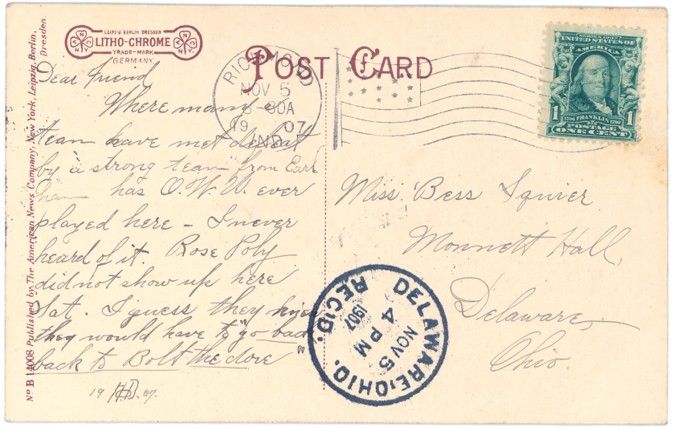 LEIPZIG BERLIN DRESDEN
LITHO-CHROME
TRADE-MARK
GERMANY.
POST CARD
RICHMOND
NOV 5
30A
1907
IND.
UNITED STATES OF
AMERICA
1 1706 FRANKLIN 1790 1
POSTAGE
ONE CENT
Dear friend
Where many a
team have met defeat
by a strong team from Earl
ham has O.W.U. ever
played here – I never
heard of it. Rose Poly
did not show up here
Sat. I guess they
they would have to go bac
back to Bolt the dore
19 HD. 07.
Miss. Bess Squier
Monnett Hall,
Delaware,
Ohio.
DELAWARE, OHIO.
NOV 5
4 PM
1907
REC'D.
No B 14008 Published by The American News Company, New York, Leipzig, Berlin,
Dresden.